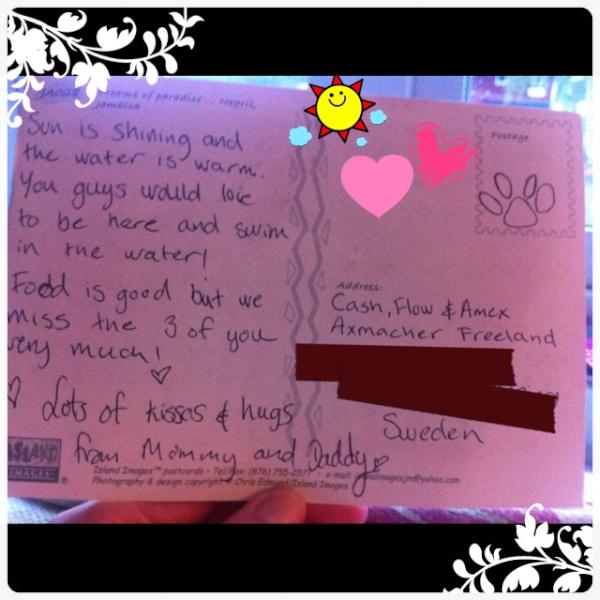 Dreams of paradise ... Negril,
Jamaica
Sun is shining and
the water is warm.
You guys would love
to be here and swim
in the water!
Food is good but we
miss the 3 of you
very much!
Lots of kisses & hugs
from Mommy and Daddy
Postage
Address:
Cash, Flow & Amex
Axmacher Freeland
Sweden
ISLAND
IMAGES
Island Images™ postcards • Tel/fax: (876)
Photography & design copyright Chris Island Images